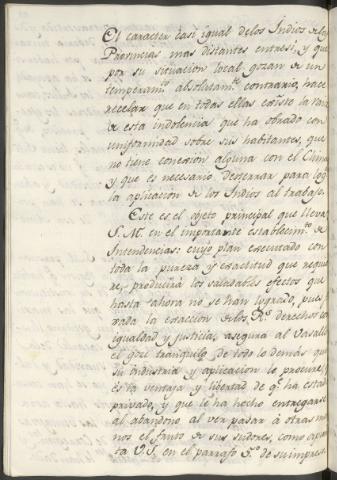 El caracter casi igual delos Indios de las
Provincias mas distantes entressi, y que
por su situacion local gozan de un
temperam.to absolutam.te contrario, hace
recelar que en todas ellas existe la raiz
de esta indolencia que ha obrado con
uniformidad sobre sus habitantes, que
no tiene conexion alguna con el Clima
y que es necesario desterrar para log
la aplicacion de los Indios al trabajo.
Este es el objeto principal que lleva
S. M. en el importante establecim.to de
Intendencias: cuyo plan executado con
toda la pureza y exactitud que requie
re, producirá los saludables efectos que
hasta ahora no se han logrado, pues
rada la exaccion delos R.s derechos con
igualdad y justicia, asegura al Vasallo
el goze tranquilo de todo lo demás que
su industria y aplicacion le procure,
esta ventaja y libertad de q.e ha estado
privado, y que le ha hecho entregarse
al abandono al ver pasar à otras ma
nos el fruto de sus sudores, como apun
ta V.S. en el parrafo 3.o de su impreso.